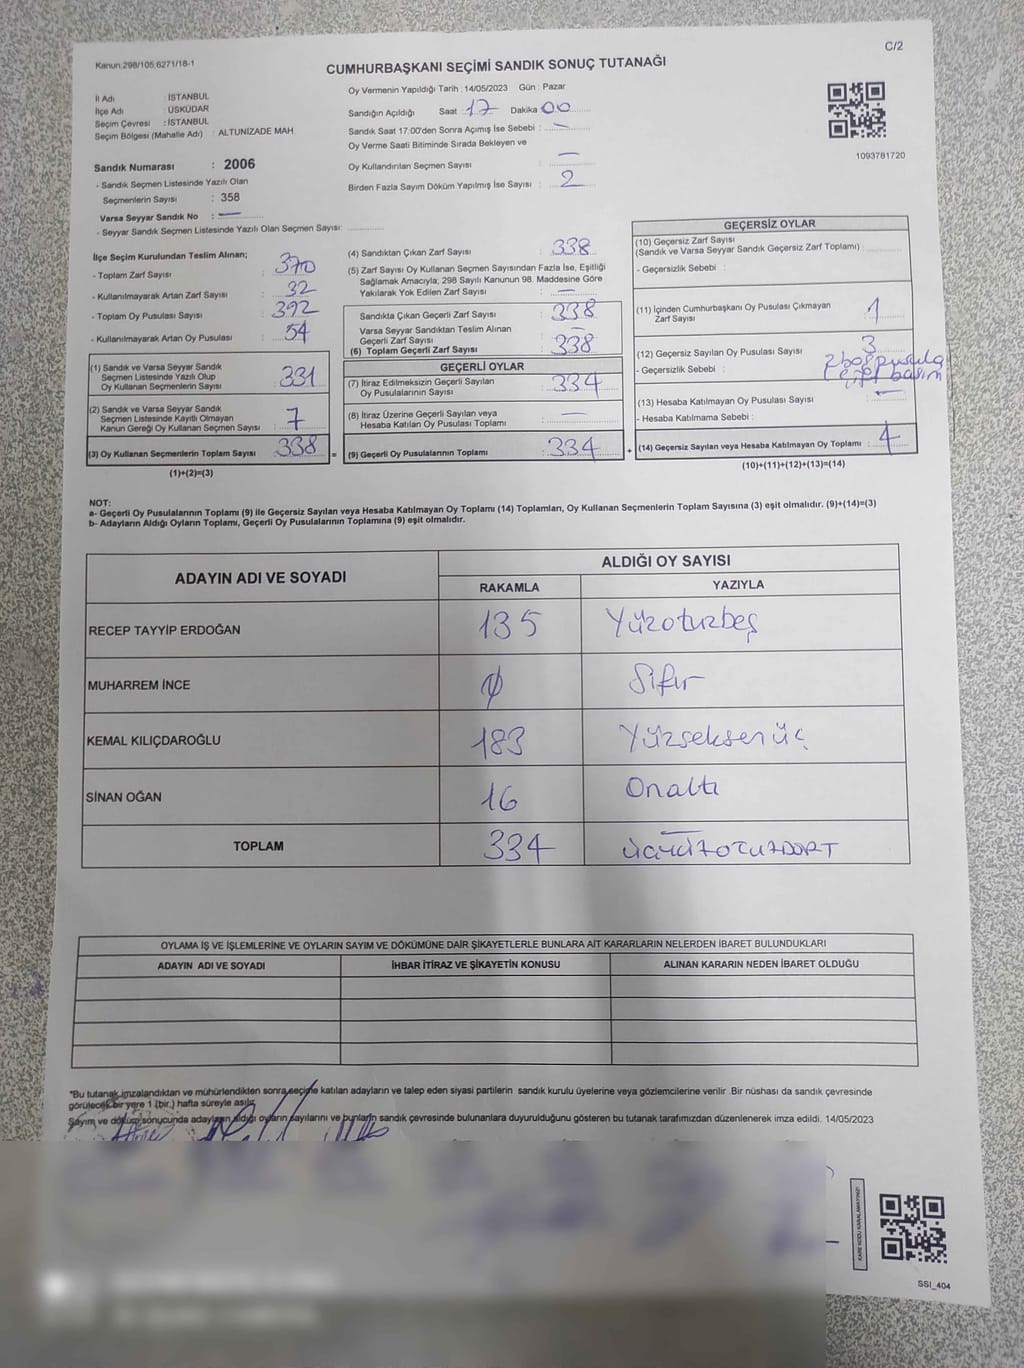 C/2
Kanun:298/105,6271/18-1
CUMHURBAŞKANI SEÇİMİ SANDIK SONUÇ TUTANAĞI
İl Adı : İSTANBUL
İlçe Adı : ÜSKÜDAR
Seçim Çevresi : İSTANBUL
Seçim Bölgesi (Mahalle Adı) : ALTUNİZADE MAH.
Sandık Numarası : 2006
- Sandık Seçmen Listesinde Yazılı Olan
Seçmenlerin Sayısı : 358
Varsa Seyyar Sandık No : —
- Seyyar Sandık Seçmen Listesinde Yazılı Olan Seçmen Sayısı:
Oy Vermenin Yapıldığı Tarih : 14/05/2023 Gün : Pazar
Sandığın Açıldığı Saat 17 Dakika 00
Sandık Saat 17.00'den Sonra Açımış İse Sebebi : —
Oy Verme Saati Bitiminde Sırada Bekleyen ve
Oy Kullandırılan Seçmen Sayısı : —
Birden Fazla Sayım Döküm Yapılmış İse Sayısı : 2
1093781720
İlçe Seçim Kurulundan Teslim Alınan;
- Toplam Zarf Sayısı : 370
- Kullanılmayarak Artan Zarf Sayısı : 32
- Toplam Oy Pusulası Sayısı : 392
- Kullanılmayarak Artan Oy Pusulası : 54
(1) Sandık ve Varsa Seyyar Sandık
Seçmen Listesinde Yazılı Olup
Oy Kullanan Seçmenlerin Sayısı : 331
(2) Sandık ve Varsa Seyyar Sandık
Seçmen Listesinde Kayıtlı Olmayan
Kanun Gereği Oy Kullanan Seçmen Sayısı : 7
(3) Oy Kullanan Seçmenlerin Toplam Sayısı : 338
(1)+(2)=(3)
(4) Sandıktan Çıkan Zarf Sayısı : 338
(5) Zarf Sayısı Oy Kullanan Seçmen Sayısından Fazla İse, Eşitliği
Sağlamak Amacıyla; 298 Sayılı Kanunun 98. Maddesine Göre
Yakılarak Yok Edilen Zarf Sayısı : —
Sandıkta Çıkan Geçerli Zarf Sayısı : 338
Varsa Seyyar Sandıktan Teslim Alınan
Geçerli Zarf Sayısı : —
(6) Toplam Geçerli Zarf Sayısı : 338
GEÇERLİ OYLAR
(7) İtiraz Edilmeksizin Geçerli Sayılan
Oy Pusulalarının Sayısı : 334
(8) İtiraz Üzerine Geçerli Sayılan veya
Hesaba Katılan Oy Pusulası Toplamı : —
=
(9) Geçerli Oy Pusulalarının Toplamı : 334
+
GEÇERSİZ OYLAR
(10) Geçersiz Zarf Sayısı
(Sandık ve Varsa Seyyar Sandık Geçersiz Zarf Toplamı) :
- Geçersizlik Sebebi :
(11) İçinden Cumhurbaşkanı Oy Pusulası Çıkmayan
Zarf Sayısı : 1
(12) Geçersiz Sayılan Oy Pusulası Sayısı : 3
- Geçersizlik Sebebi : 2 boş pusula
1 çift basım
(13) Hesaba Katılmayan Oy Pusulası Sayısı : —
- Hesaba Katılmama Sebebi :
(14) Geçersiz Sayılan veya Hesaba Katılmayan Oy Toplamı : 4
(10)+(11)+(12)+(13)=(14)
NOT:
a- Geçerli Oy Pusulalarının Toplamı (9) ile Geçersiz Sayılan veya Hesaba Katılmayan Oy Toplamı (14) Toplamları, Oy Kullanan Seçmenlerin Toplam Sayısına (3) eşit olmalıdır. (9)+(14)=(3)
b- Adayların Aldığı Oyların Toplamı, Geçerli Oy Pusulalarının Toplamına (9) eşit olmalıdır.
ADAYIN ADI VE SOYADI ALDIĞI OY SAYISI
RAKAMLA YAZIYLA
RECEP TAYYİP ERDOĞAN 135 Yüzotuzbeş
MUHARREM İNCE 0 Sıfır
KEMAL KILIÇDAROĞLU 183 Yüzseksenüç
SİNAN OĞAN 16 Onaltı
TOPLAM 334 ÜÇYÜZOTUZDÖRT
OYLAMA İŞ VE İŞLEMLERİNE VE OYLARIN SAYIM VE DÖKÜMÜNE DAİR ŞİKAYETLERLE BUNLARA AİT KARARLARIN NELERDEN İBARET BULUNDUKLARI
ADAYIN ADI VE SOYADI İHBAR İTİRAZ VE ŞİKAYETİN KONUSU ALINAN KARARIN NEDEN İBARET OLDUĞU
*Bu tutanak imzalandıktan ve mühürlendikten sonra seçime katılan adayların ve talep eden siyasi partilerin sandık kurulu üyelerine veya gözlemcilerine verilir. Bir nüshası da sandık çevresinde
görülecek bir yere 1 (bir.) hafta süreyle asılır.
Sayım ve döküm sonucunda adayların aldığı oyların sayılarını ve bunların sandık çevresinde bulunanlara duyurulduğunu gösteren bu tutanak tarafımızdan düzenlenerek imza edildi. 14/05/2023
KARE KODU KARALAMAYINIZ!
SSI_404